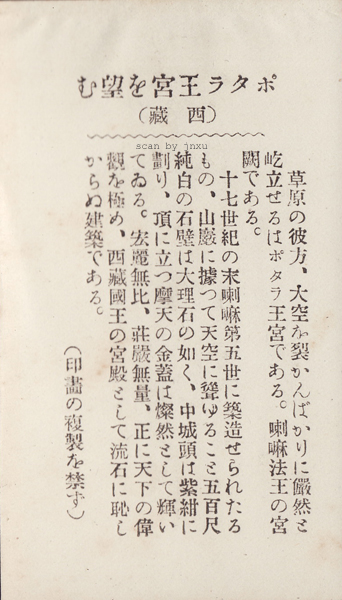 ポタラ王宮を望む
（西藏）
scan by jnxu
草原の彼方、大空を裂かんばかりに儼然と
屹立せるはポタラ王宮である。喇嘛法王の宮
闕である。
十七世紀の末喇嘛第五世に築造せられたる
もの、山巖に據つて天空に聳ゆること五百尺
純白の石壁は大理石の如く、中城頭は紫紺に
劃り、頂に立つ摩天の金蓋は燦然として輝い
てゐる。宏麗無比、莊嚴無量、正に天下の偉
觀を極め、西藏國王の宮殿として流石に恥し
からぬ建築である。
（印畫の複製を禁ず）